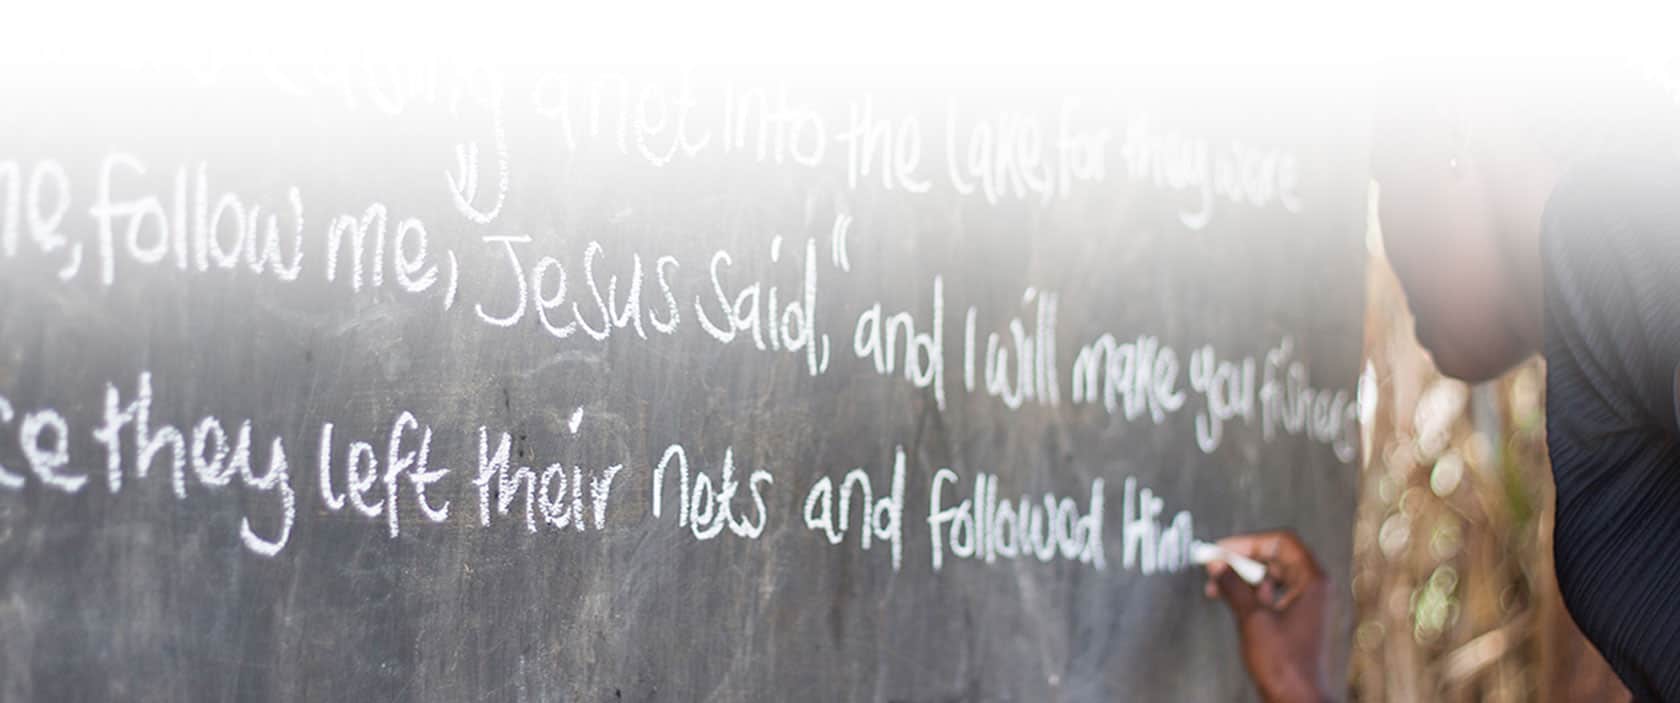 casting a net into the lake, for they were
me, follow me," Jesus said," and I will make you fishers
ce they left their nets and followed Him